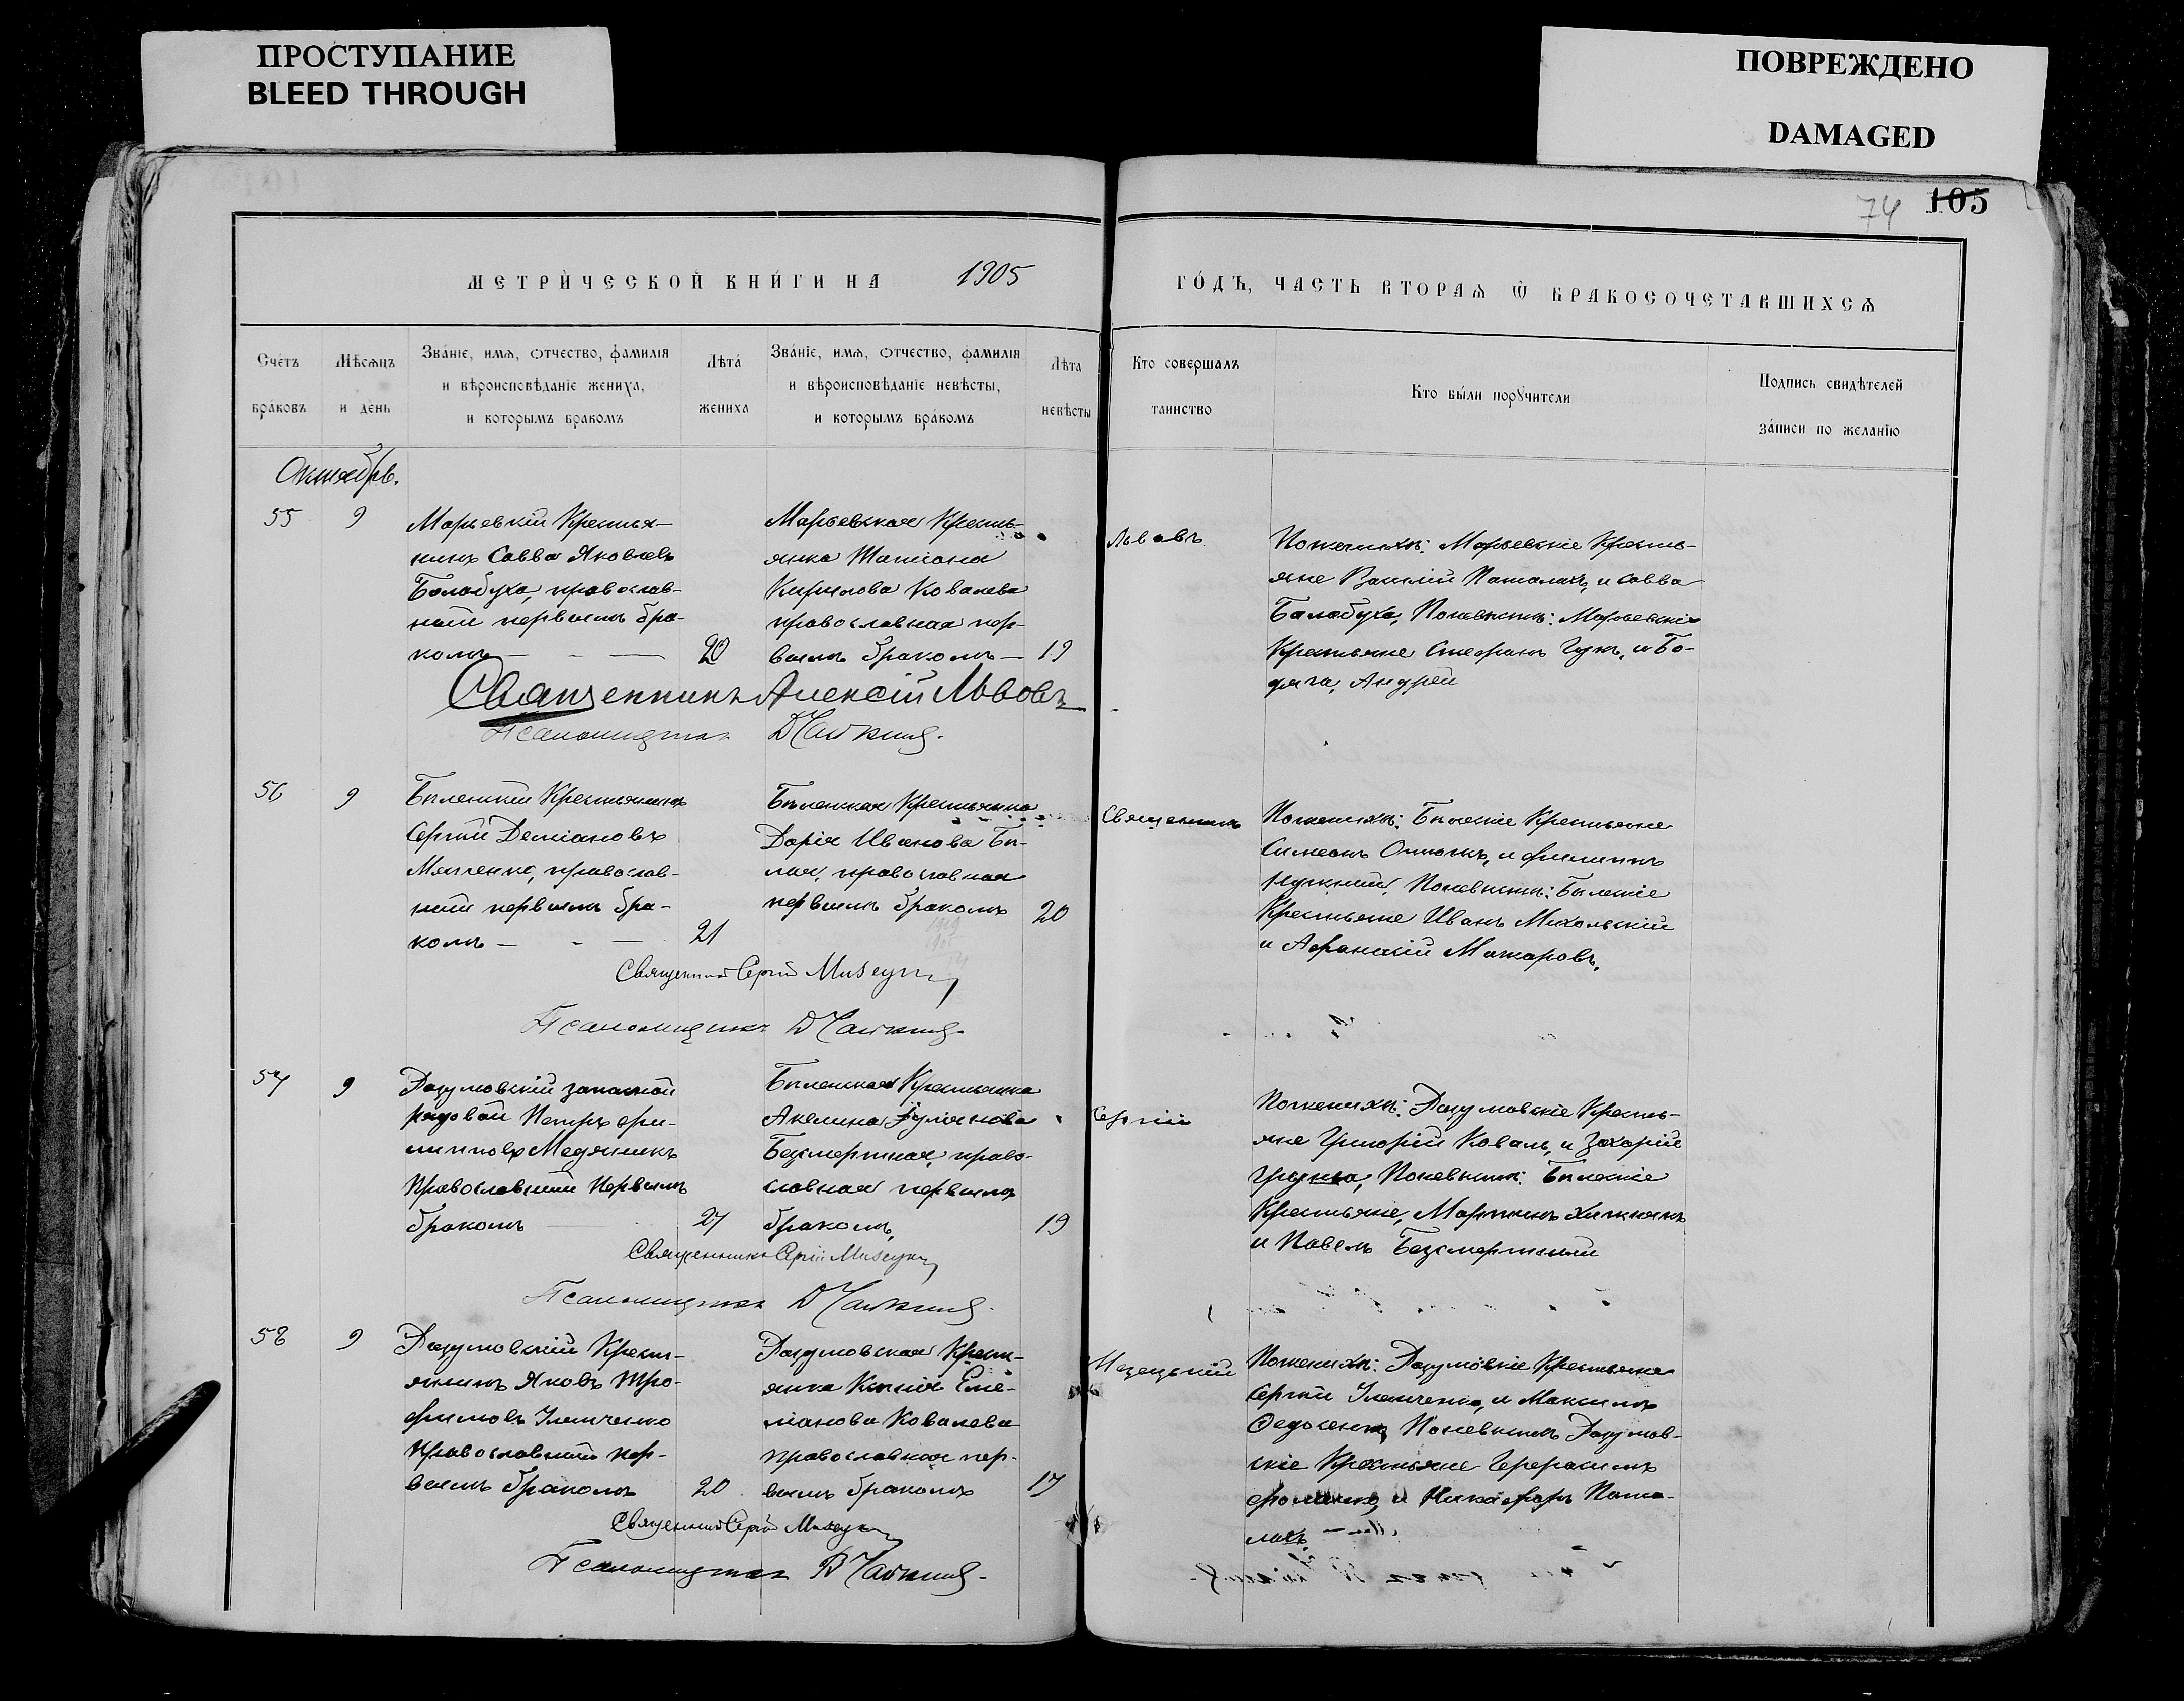 ПРОСТУПАНИЕ
BLEED THROUGH
ПОВРЕЖДЕНО
DAMAGED
74 105
МЕТРИ́ЧЕСКОЙ КНИ́ГИ НА 1905
ГО́ДЪ, ЧАСТЬ ВТОРАѦ Ѿ БРАКОСОЧЕТАВШИХСѦ
Счетъ браковъ
Мѣсѧцъ и день
Званіе, имѧ, отчество, фамилія
и вѣроисповѣданіе жениха,
и которымъ бракомъ
Лѣта жениха
Званіе, имѧ, отчество, фамилія
и вѣроисповѣданіе невѣсты,
и которымъ бракомъ
Лѣта невѣсты
Кто совершалъ
таинство
Кто были порꙋчители
Подпись свидѣтелей
записи по желанію
Октябрь.
55 9
Марьевкій Крестья-
нинъ Савва Яковлевъ
Балабуха, православ-
ный первымъ бра-
комъ — 20
Марьевская Кресть-
янка Татіана
Кирилова Ковалева
православная пер-
вымъ бракомъ — 19
Львовъ
По женихѣ: Марьевскіе Кресть-
яне Василій Паталахъ, и Савва
Балабуха, По невѣстѣ: Марьевскіе
Крестьяне Стефанъ Гукъ, и Бо-
дяга, Андрей
Священникъ Алексій Львовъ
Псаломщикъ
56 9
Бѣленькій Крестьянинъ
Сергій Деміановъ
православ-
ный первымъ бра-
комъ — 21
Бѣленькая Крестьянка
Дарія Иванова Бѣ-
лая, православная
первымъ бракомъ 20
Священникъ
По женихѣ: Бѣленкіе Крестьяне
Симеонъ и Филиппъ
По невѣстѣ: Бѣленкіе
Крестьяне Иванъ Михольскій
и Афанасій Макаровъ.
Священникъ Сергій
Псаломщикъ
57 9
Разумовскій запасной
рядовой Петръ Фи-
липповъ Медяникъ
Православный Первымъ
бракомъ 27
Бѣленькая Крестьянка
Акелина
Безсмертная, право-
славная первымъ
бракомъ, 19
Сергій
По женихѣ: Разумовскіе Кресть-
яне Григорій Коваль, и Захарій
По невѣстѣ: Бѣленкіе
Крестьяне, Мартинъ Хижнякъ
и Павелъ Безсмертный
Священникъ Сергій
Псаломщикъ
58 9
Разумовскій Крест-
янинъ Яковъ Тро-
фимовъ
Православный пер-
вымъ бракомъ 20
Разумовская Крест-
янка Ксенія Еме-
ліанова Ковалева
православная пер-
вымъ бракомъ 17
По женихѣ: Разумовскіе Крестьяне
Сергій и Максимъ
По невѣстѣ Разумов-
скіе Крестьяне
и Никифоръ Пата-
лахъ.
Священникъ Сергій
Псаломщикъ